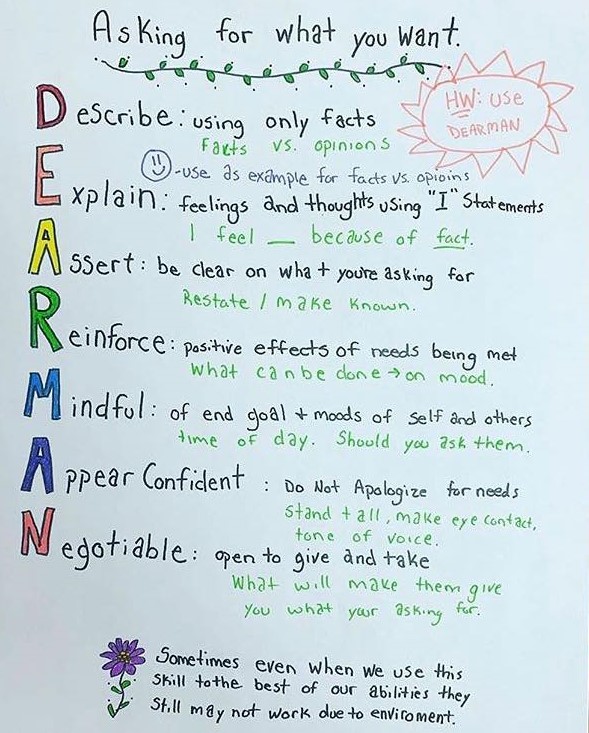 Asking for what you want.
HW: USE
DEARMAN
Describe: using only facts
Facts vs. opinions
-use as example for facts vs. opioins
Explain: feelings and thoughts using "I" Statements
I feel __ because of fact.
Assert: be clear on what you're asking for
Restate / make known.
Reinforce: positive effects of needs being met
What can be done → on mood.
Mindful: of end goal + moods of self and others
time of day. Should you ask them.
Appear Confident : Do Not Apologize for needs
Stand tall, make eye contact,
tone of voice.
Negotiable: open to give and take
What will make them give
you what your asking for.
Sometimes even when we use this
skill to the best of our abilities they
still may not work due to enviroment.